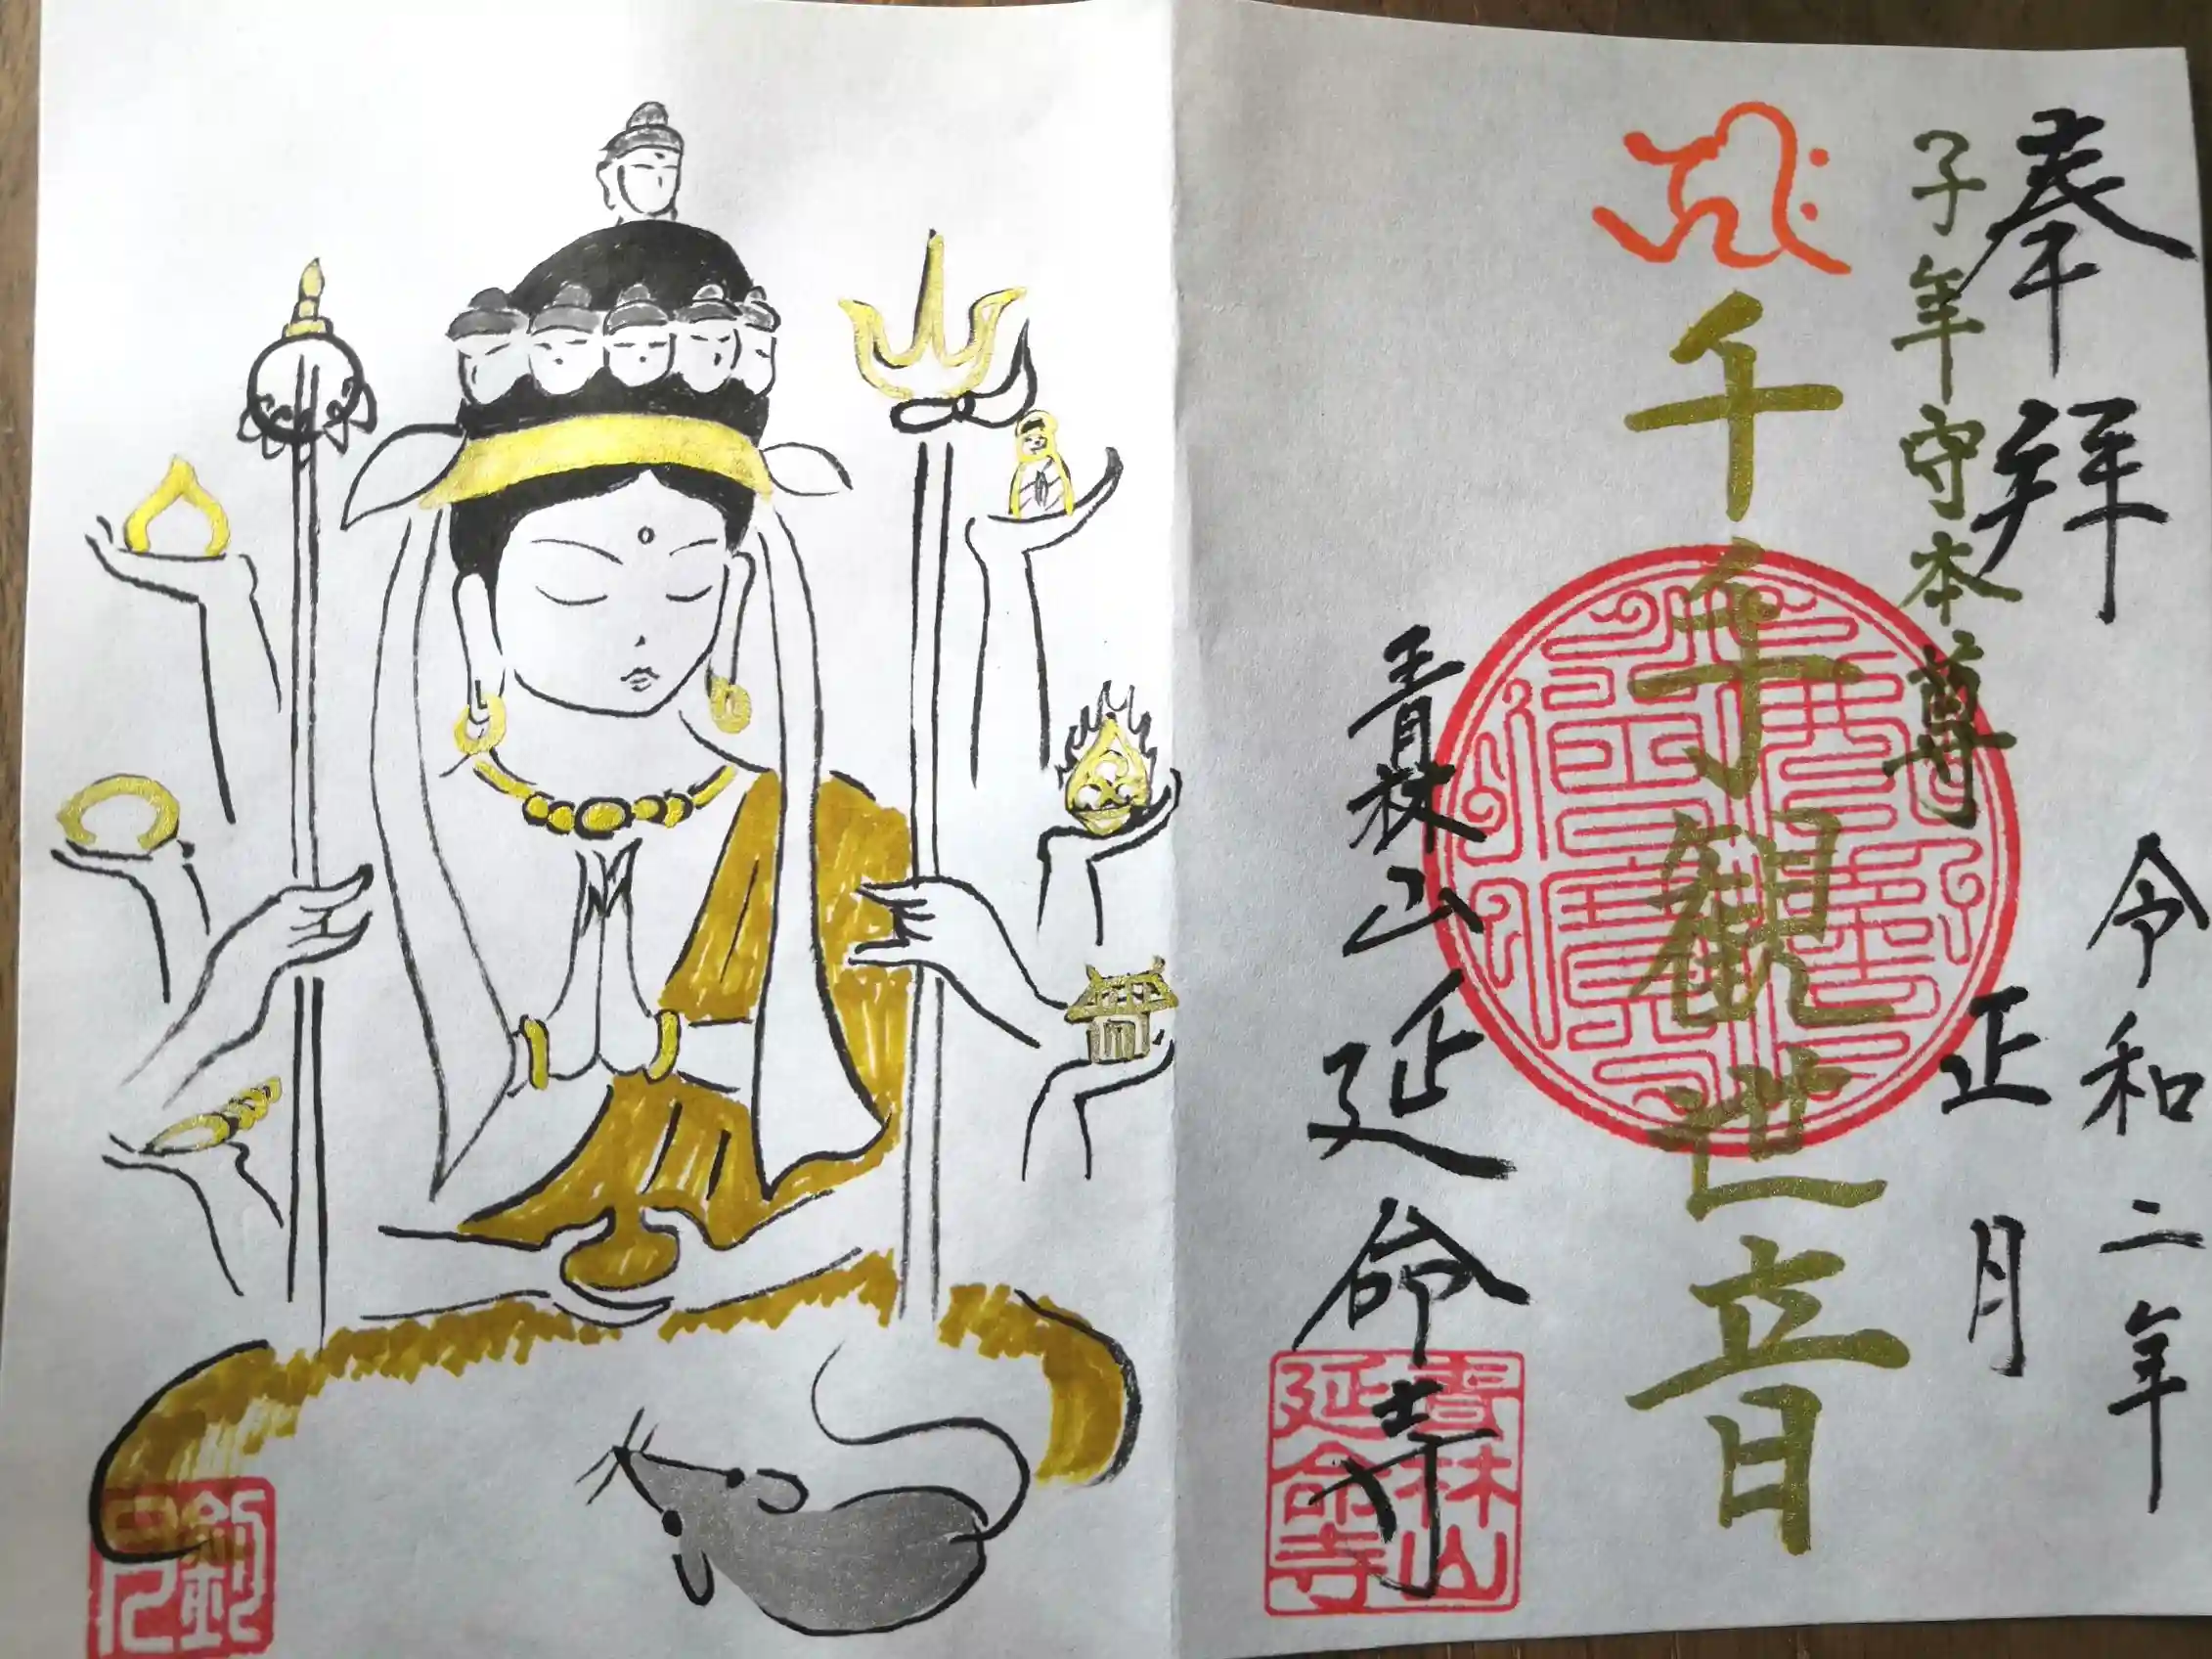 奉拝
令和二年
正月
子年守本尊
千手観世音
青林山
延命寺
青林山
延命寺